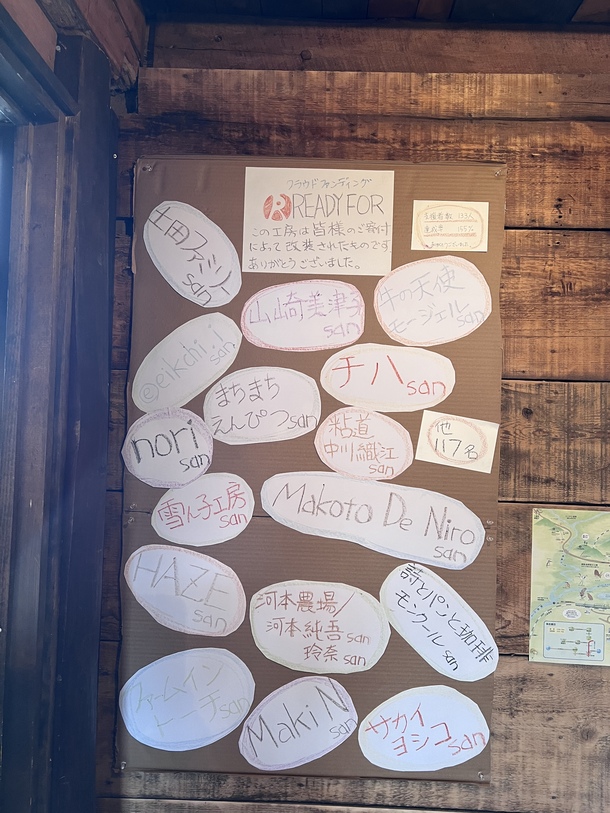 クラウドファンディング
READYFOR
この工房は皆様のご寄付
によって改装されたものです
ありがとうございました。
支援者数 133人
達成率 165%
ありがとうございました。
土田ファミリー
san
山崎美津子
san
牛の天使
モージェル san
@eikchi.i
san
チハ san
まちまち
えんぴつ san
nori
san
粘道
中川織江
san
他
117名
雪ん子工房
san
Makoto De Niro
san
HAZE
san
河本農場/
河本純吾 san
玲奈 san
詩とパンと珈琲
モンクール san
ファームイン
トーチ san
Maki N
san
サカイ
ヨシコ san